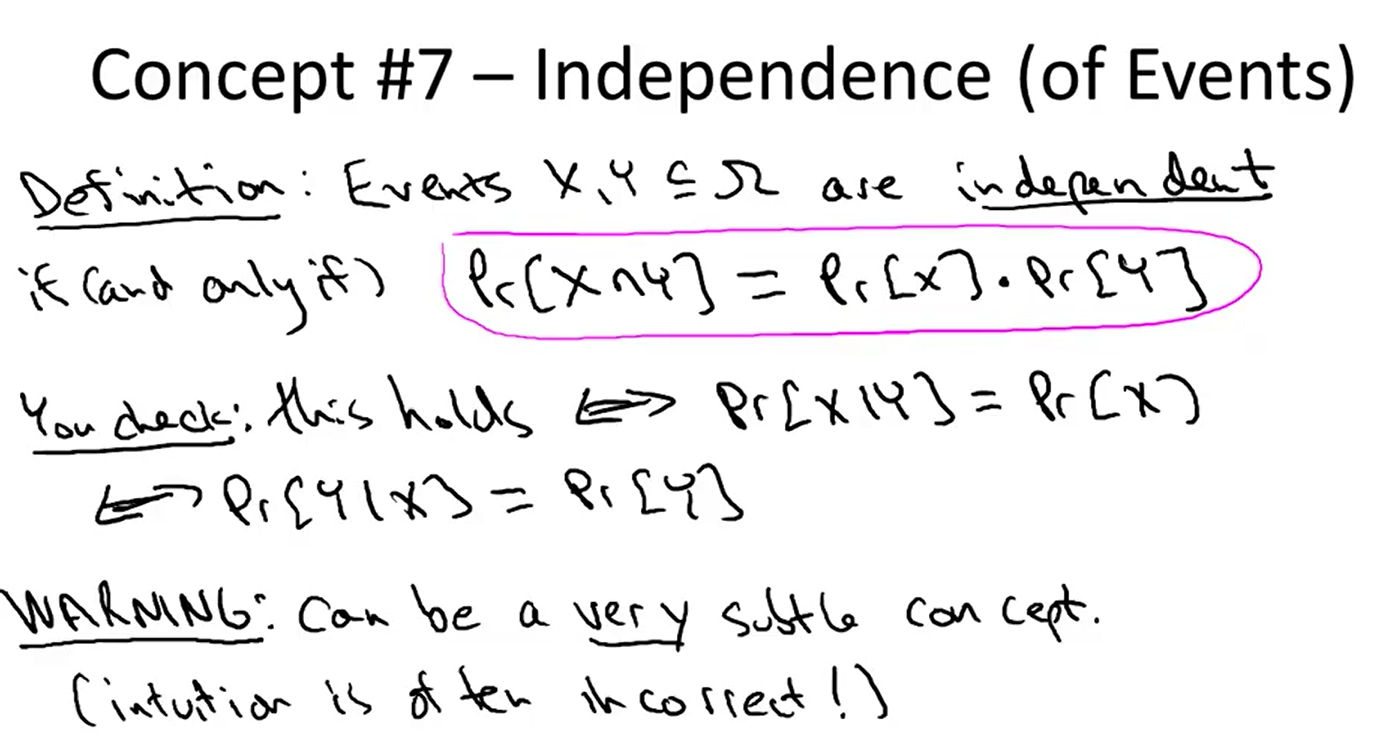 Concept #7 – Independence (of Events)
Definition: Events X, Y ⊆ Ω are independent
if (and only if) Pr[X∩Y] = Pr[X]·Pr[Y]
You check: this holds ⟺ Pr[X|Y] = Pr[X]
⟺ Pr[Y|X] = Pr[Y]
WARNING: can be a very subtle concept.
(intuition is often incorrect!)